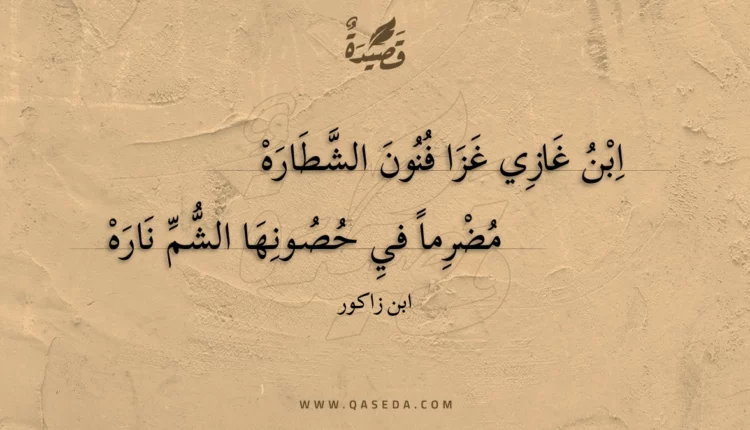 قَصِيْدَةٌ
اِبْنُ غَازِي غَزَا فُنُونَ الشَّطَارَهْ
مُضْرِماً فيِ حُصُونِهَا الشُّمِّ نَارَهْ
ابن زاكور
WWW.QASEDA.COM